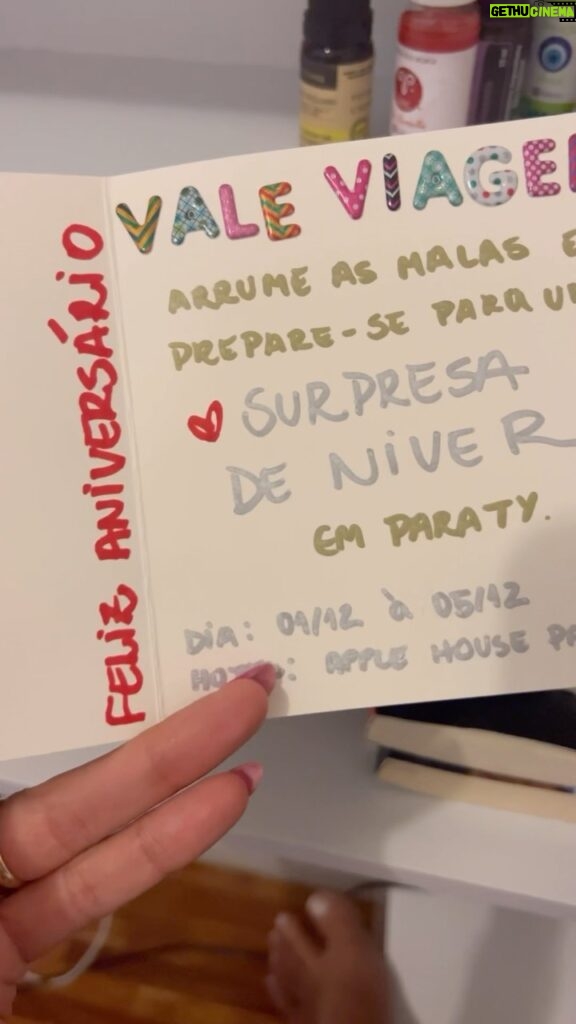 GETHUCINEMA
FELIZ ANIVERSÁRIO
VALE VIAGE
ARRUME AS MALAS E
PREPARE-SE PARA U
SURPRESA
DE NIVER
EM PARATY.
DIA: 01/12 à 05/12
: APPLE HOUSE PA